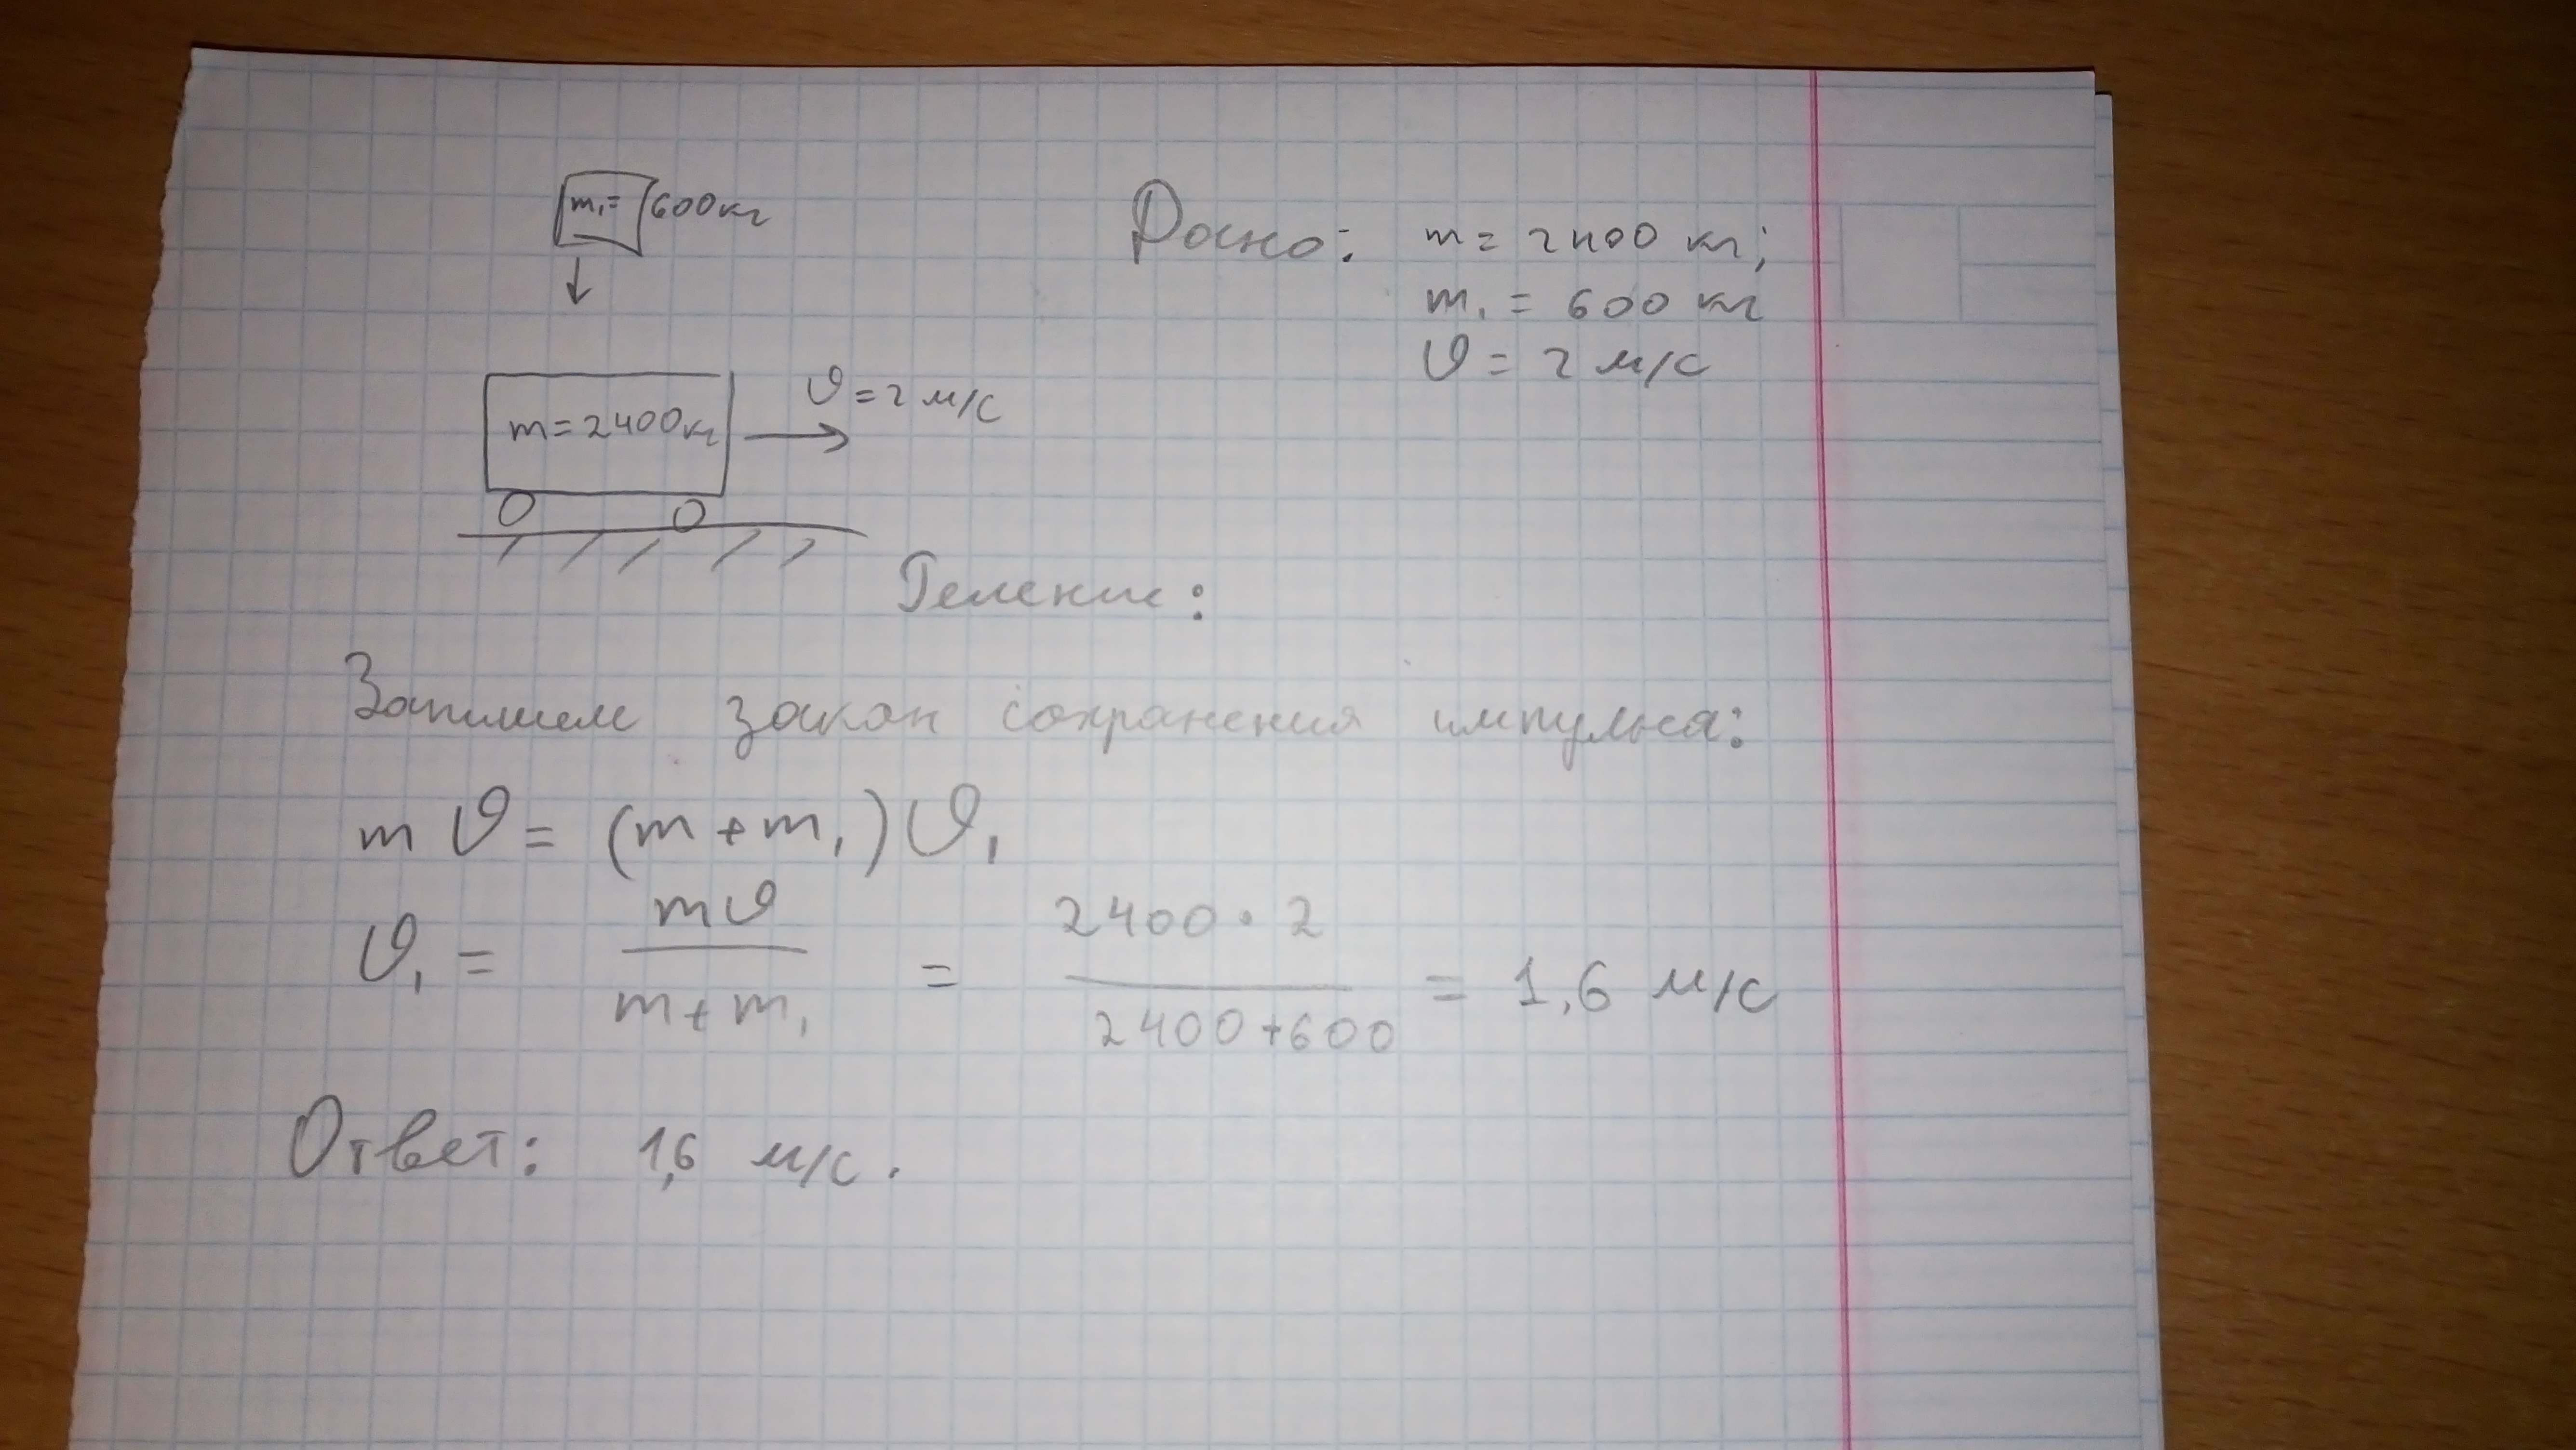 m₁= 600кг
m=2400кг
υ=2 м/с
Дано: m= 2400 кг;
m₁ = 600 кг
υ = 2 м/с
Решение:
Запишем закон сохранения импульса:
mυ = (m+m₁)υ₁
υ₁ = mυ / m+m₁ = 2400·2 / 2400+600 = 1,6 м/с
Ответ: 1,6 м/с.